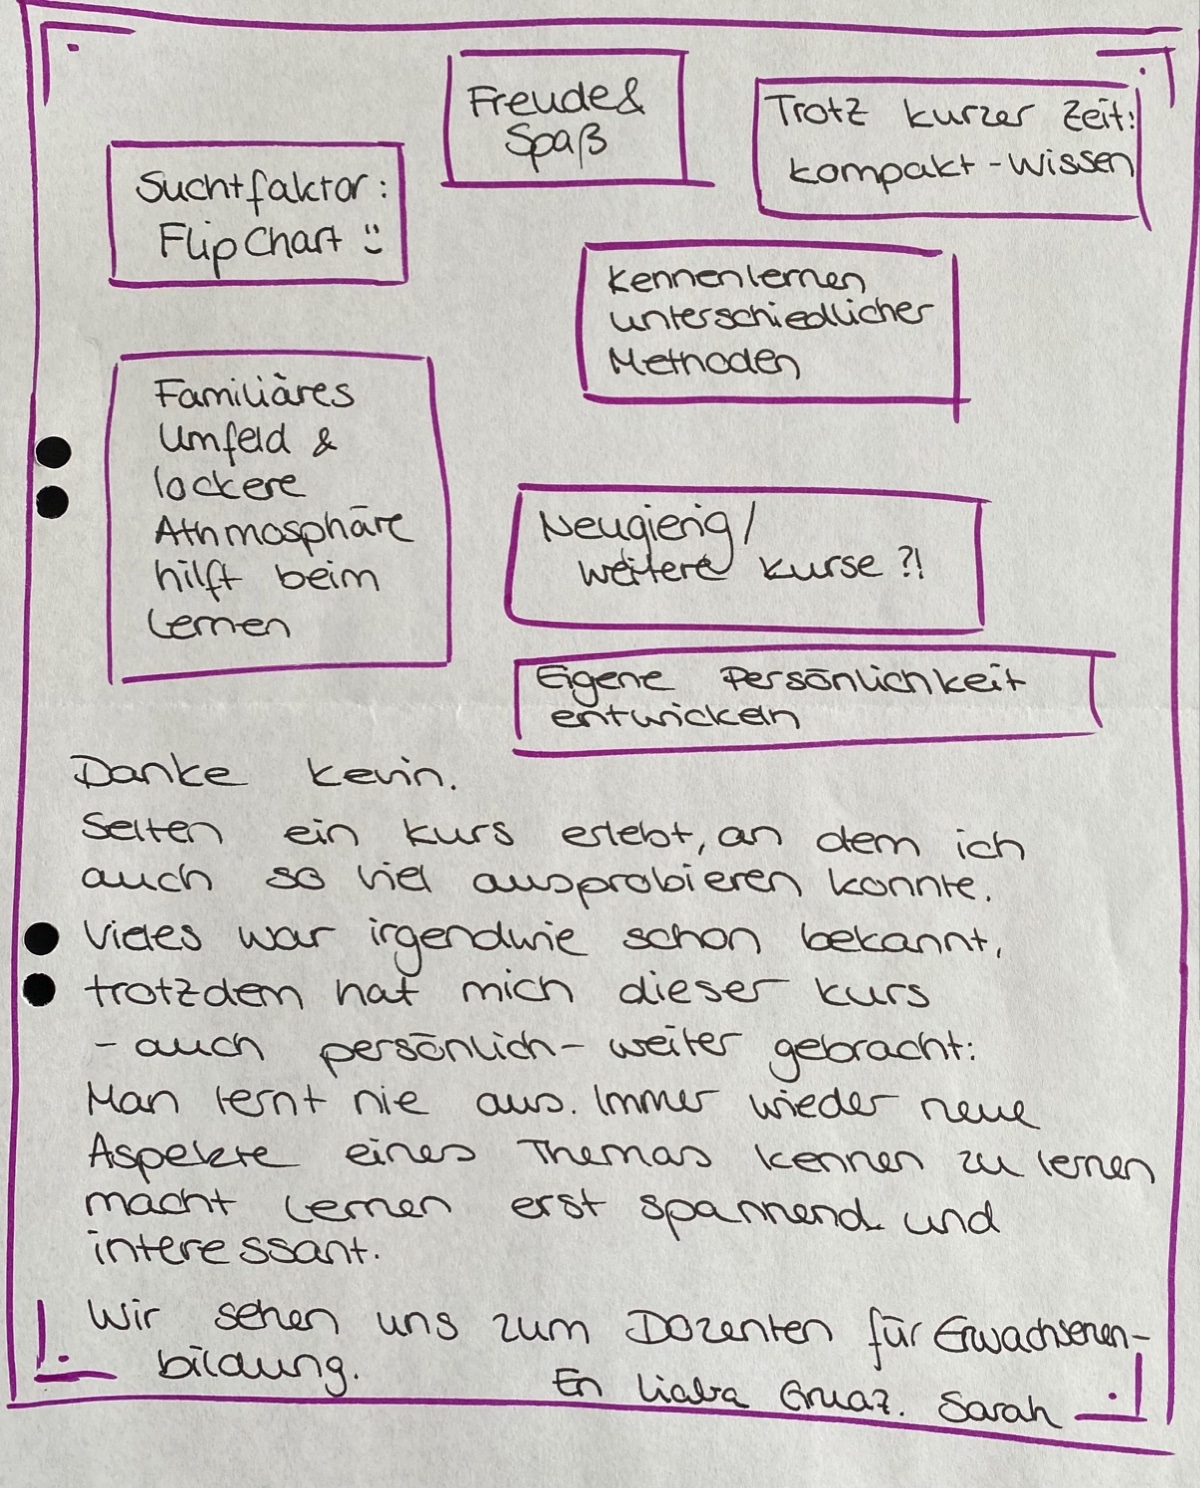 Freude &
Spaß
Trotz kurzer Zeit:
kompakt-Wissen
Suchtfaktor:
FlipChart :)
Kennenlernen
unterschiedlicher
Methoden
Familiäres
Umfeld &
lockere
Athmosphäre
hilft beim
Lernen
Neugierig/
weitere Kurse?!
Eigene Persönlichkeit
entwickeln
Danke Kevin.
Selten ein Kurs erlebt, an dem ich
auch so viel ausprobieren konnte.
Vieles war irgendwie schon bekannt,
trotzdem hat mich dieser Kurs
- auch persönlich - weiter gebracht:
Man lernt nie aus. Immer wieder neue
Aspekte eines Themas kennen zu lernen
macht Lernen erst spannend und
interessant.
Wir sehen uns zum Dozenten für Erwachsenen-
bildung.
En liaba Gruaz. Sarah